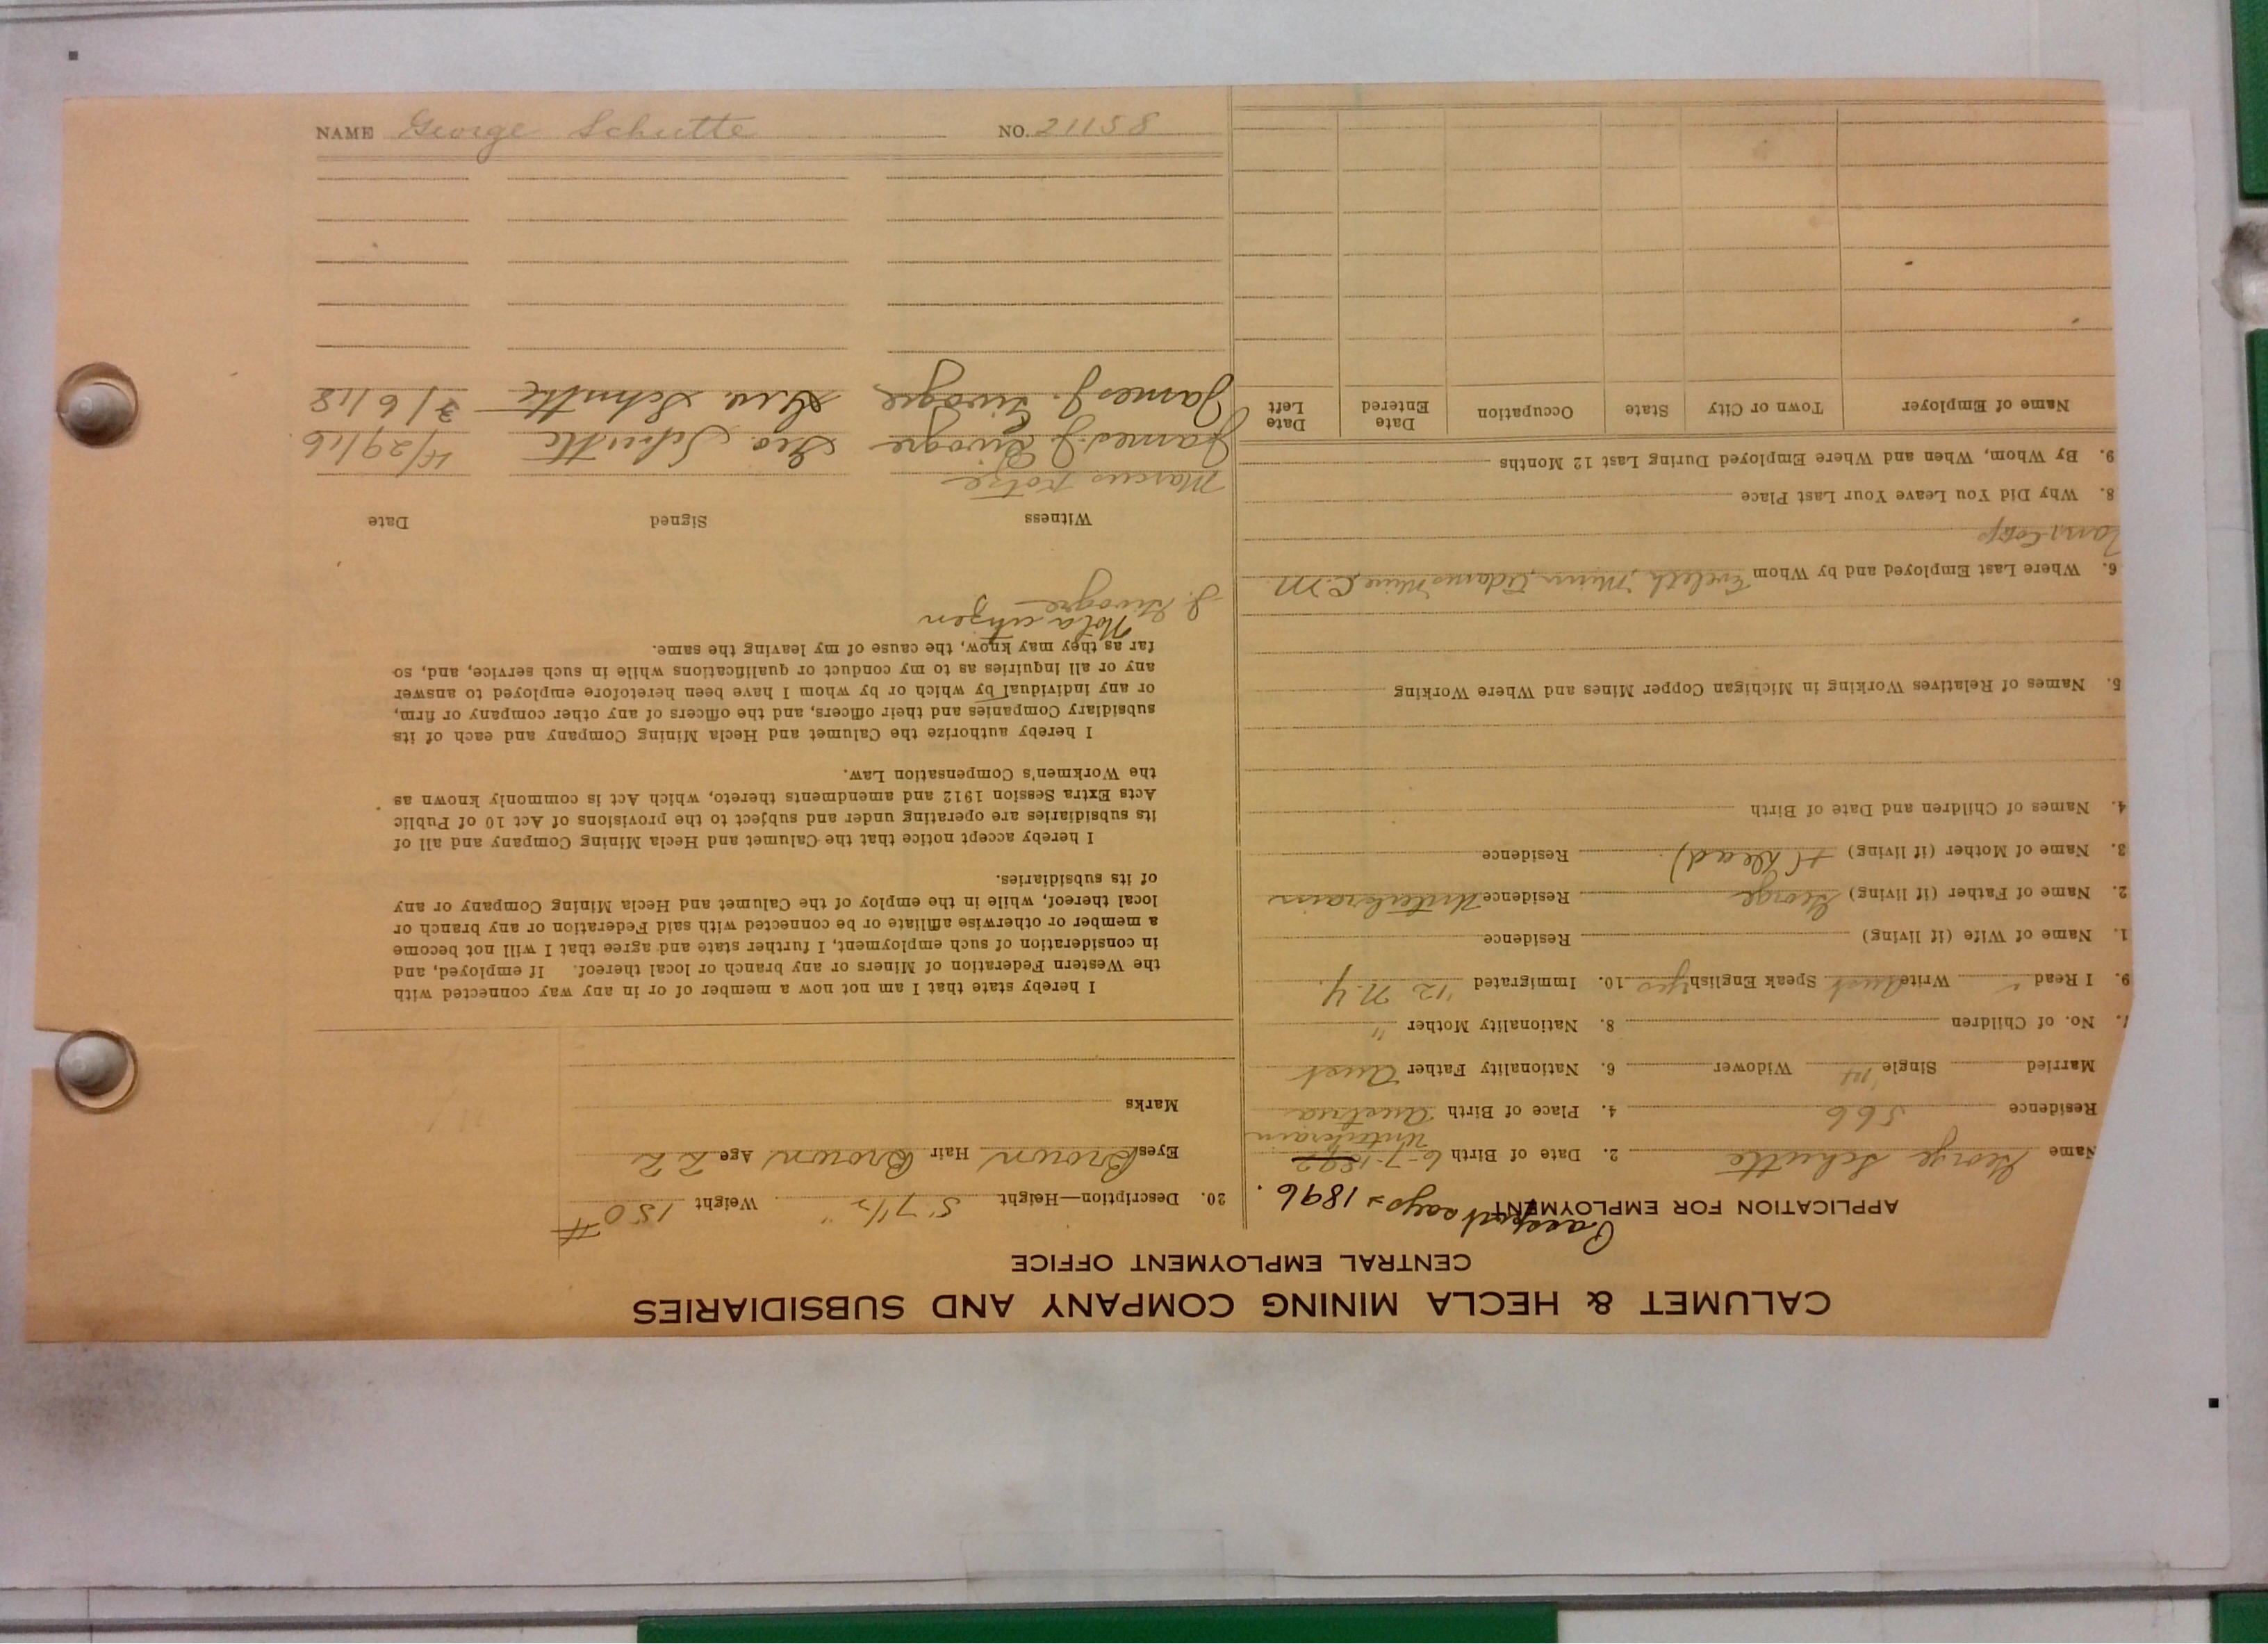 CALUMET & HECLA MINING COMPANY AND SUBSIDIARIES
CENTRAL EMPLOYMENT OFFICE
APPLICATION FOR EMPLOYMENT
Passport says 1896.
Name George Schutte 2. Date of Birth 6-7-1892
Unterkrain
Residence 566 4. Place of Birth Austria
Married Single Widower 6. Nationality Father Aust
7. No. of Children 8. Nationality Mother "
9. I Read " Write Aust Speak English yes 10. Immigrated '12 N.Y.
1. Name of Wife (if living) Residence
2. Name of Father (if living) George Residence Unterkrain
3. Name of Mother (if living) (Dead) Residence
4. Names of Children and Date of Birth
5. Names of Relatives Working in Michigan Copper Mines and Where Working
6. Where Last Employed and by Whom Eveleth, Minn, Adams Mine, C.M.
8. Why Did You Leave Your Last Place
9. By Whom, When and Where Employed During Last 12 Months
Name of Employer Town or City State Occupation Date Entered Date Left
20. Description—Height 5' 7 1/2" Weight 150 #
Eyes Brown Hair Brown Age 22
Marks
I hereby state that I am not now a member of or in any way connected with
the Western Federation of Miners or any branch or local thereof. If employed, and
in consideration of such employment, I further state and agree that I will not become
a member or otherwise affiliate or be connected with said Federation or any branch or
local thereof, while in the employ of the Calumet and Hecla Mining Company or any
of its subsidiaries.
I hereby accept notice that the Calumet and Hecla Mining Company and all of
its subsidiaries are operating under and subject to the provisions of Act 10 of Public
Acts Extra Session 1912 and amendments thereto, which Act is commonly known as
the Workmen's Compensation Law.
I hereby authorize the Calumet and Hecla Mining Company and each of its
subsidiary Companies and their officers, and the officers of any other company or firm,
or any individual by which or by whom I have been heretofore employed to answer
any or all inquiries as to my conduct or qualifications while in such service, and, so
far as they may know, the cause of my leaving the same.
Not a citizen
Witness Signed Date
Marcus
James J. Geo. Schutte 4/29/16
James J. Geo Schutte 3/6/18
NAME George Schutte NO. 21158